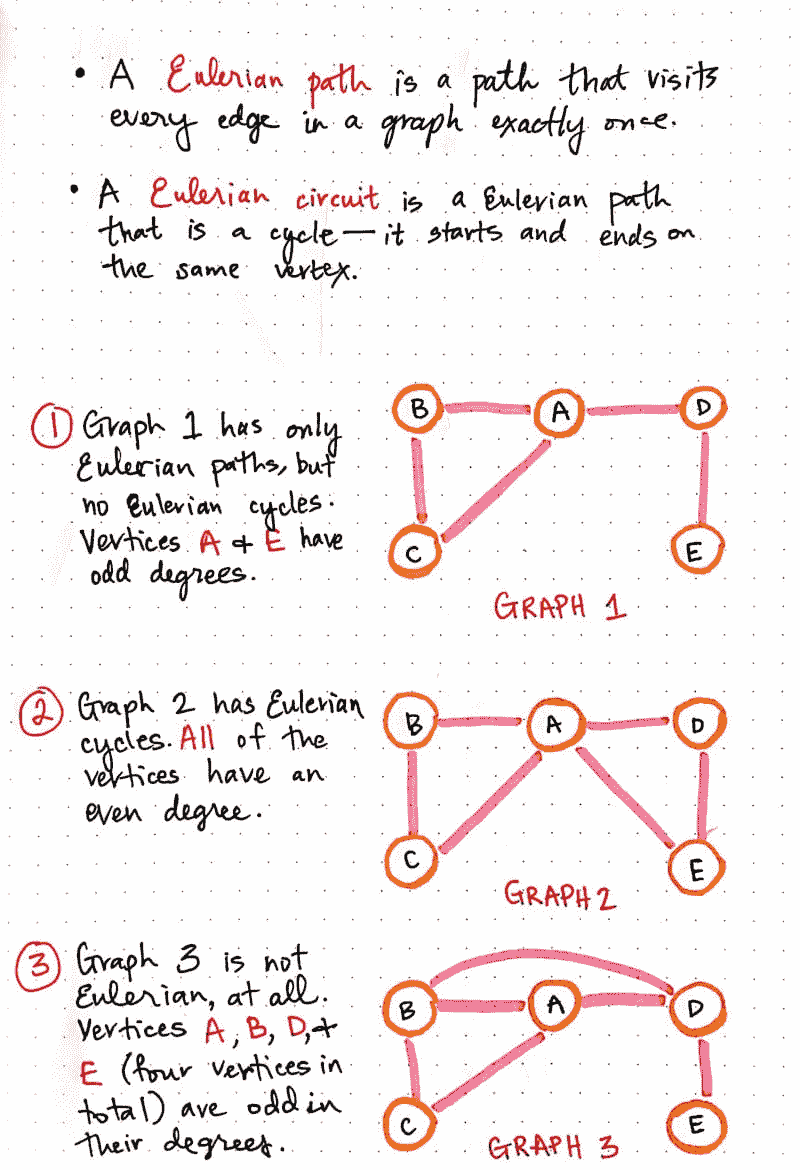 • A Eulerian path is a path that visits
every edge in a graph exactly once.
• A Eulerian circuit is a Eulerian path
that is a cycle — it starts and ends on
the same vertex.
① Graph 1 has only
Eulerian paths, but
no Eulerian cycles.
Vertices A + E have
odd degrees.
B A D
C E
GRAPH 1
② Graph 2 has Eulerian
cycles. All of the
vertices have an
even degree.
B A D
C E
GRAPH 2
③ Graph 3 is not
Eulerian, at all.
Vertices A, B, D, +
E (four vertices in
total) are odd in
their degrees.
B A D
C E
GRAPH 3